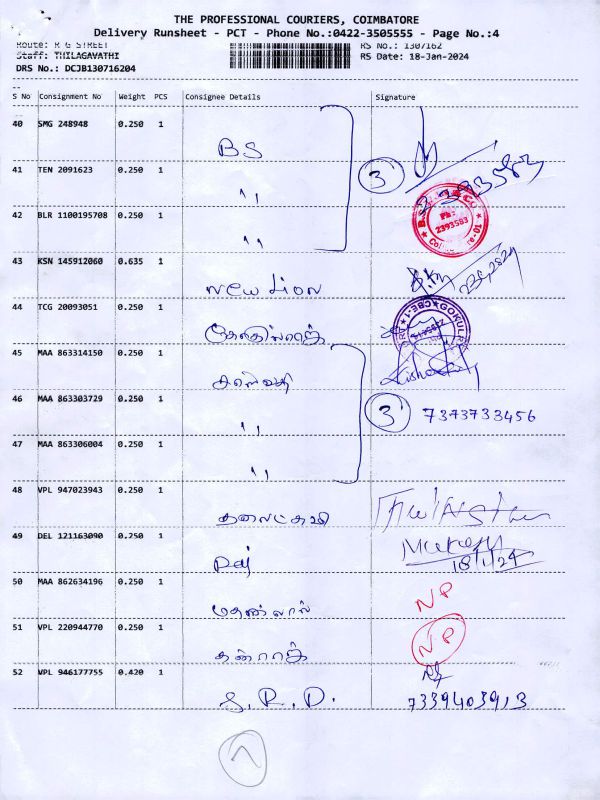 THE PROFESSIONAL COURIERS, COIMBATORE
Delivery Runsheet - PCT - Phone No.:0422-3505555 - Page No.:4
Route: R G STREET RS No.: 1307162
Staff: THILAGAVATHI RS Date: 18-Jan-2024
DRS No.: DCJB130716204
S No Consignment No Weight PCS Consignee Details Signature
40 SMG 248948 0.250 1
BS
41 TEN 2091623 0.250 1 3
〃
42 BLR 1100195708 0.250 1
〃 2393583
43 KSN 145912060 0.635 1
New Lion
44 TCG 20093051 0.250 1
GOKULR CBE-1
45 MAA 863314150 0.250 1
46 MAA 863303729 0.250 1
〃 3 7373733456
47 MAA 863306004 0.250 1
〃
48 VPL 947023943 0.250 1
49 DEL 121163090 0.250 1
Raj 18/1/24
50 MAA 862634196 0.250 1
NP
51 VPL 220944770 0.250 1
NP
52 VPL 946177755 0.420 1
S.R.D. 7339403913
7